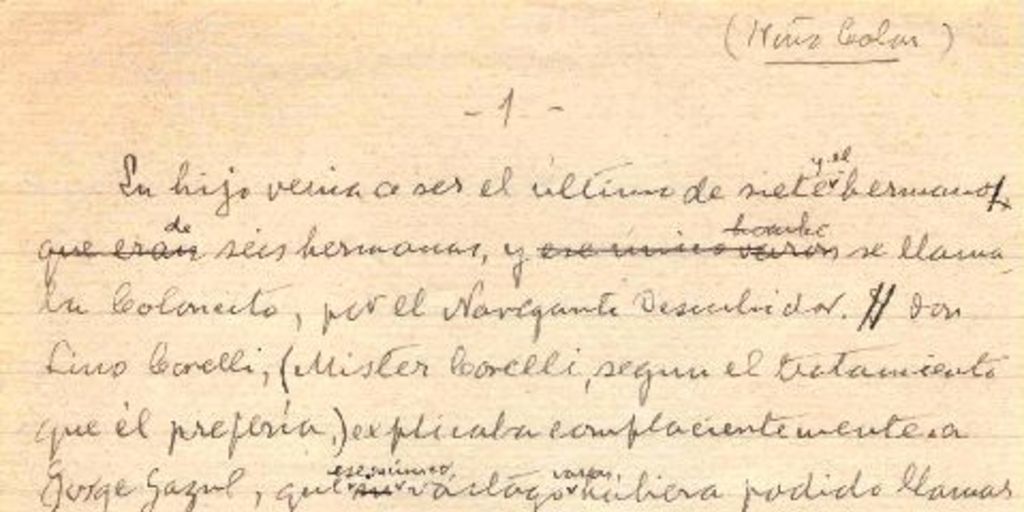 (Niño Colon)
- 1 -
Su hijo venia a ser el último de siete y el hermano,
que eran de seis hermanas, y ese único varon hombre se llama
ba Coloncito, por el Navegante Descubridor. // Don
Lino Corelli, (Mister Corelli, segun el tratamiento
que él prefería,) explicaba complacientemente a
Jorge Gazul, que su ese único vástago varon, hubiera podido llamar